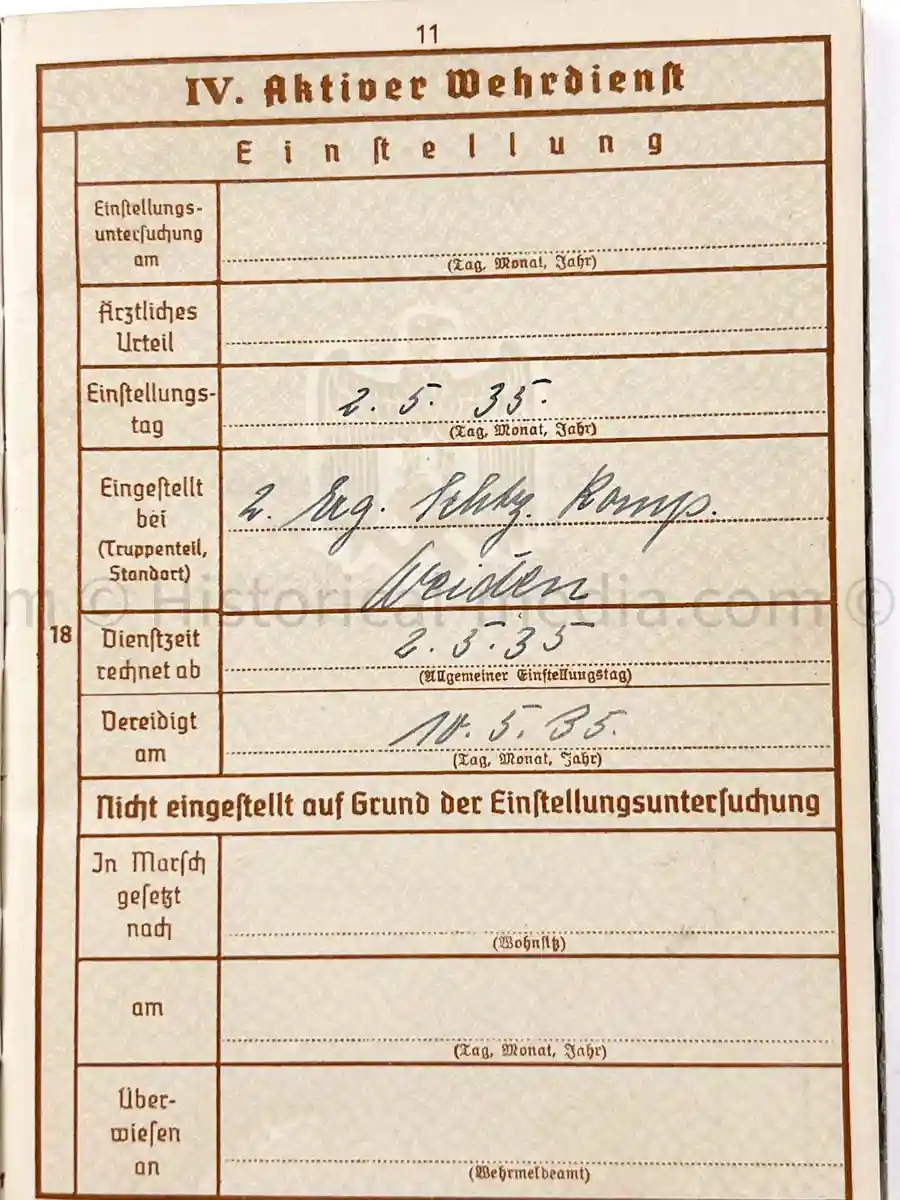 11
IV. Aktiver Wehrdienst
Einstellung
Einstellungs-
untersuchung
am
(Tag, Monat, Jahr)
Ärztliches
Urteil
Einstellungs-
tag
2. 5. 35.
(Tag, Monat, Jahr)
Eingestellt
bei
(Truppenteil,
Standort)
2. Erg. Schtz. Komp.
Weiden
m © Historical-media.com ©
18
Dienstzeit
rechnet ab
2. 5. 35
(Allgemeiner Einstellungstag)
Vereidigt
am
10. 5. 35.
(Tag, Monat, Jahr)
Nicht eingestellt auf Grund der Einstellungsuntersuchung
In Marsch
gesetzt
nach
(Wohnsitz)
am
(Tag, Monat, Jahr)
Über-
wiesen
an
(Wehrmeldeamt)